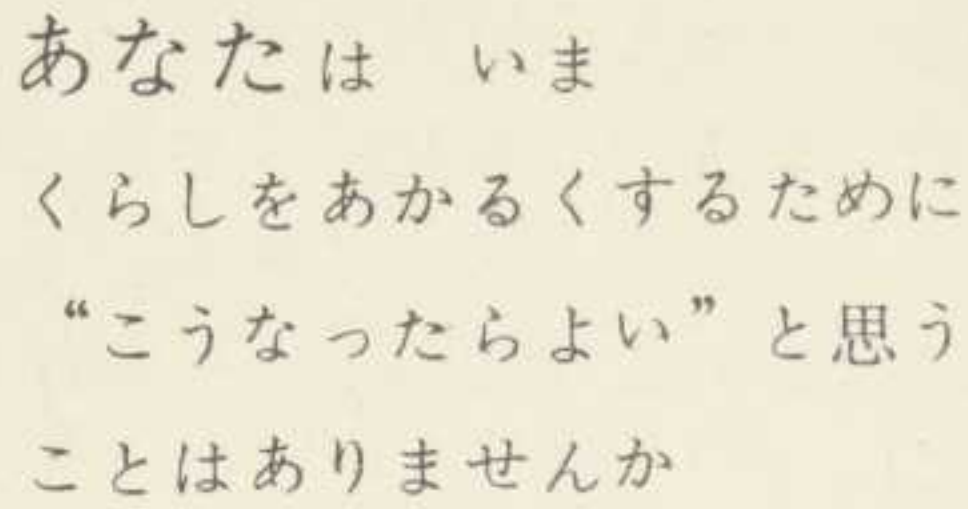 あなたは　いま
くらしをあかるくするために
“こうなったらよい”と思う
ことはありませんか